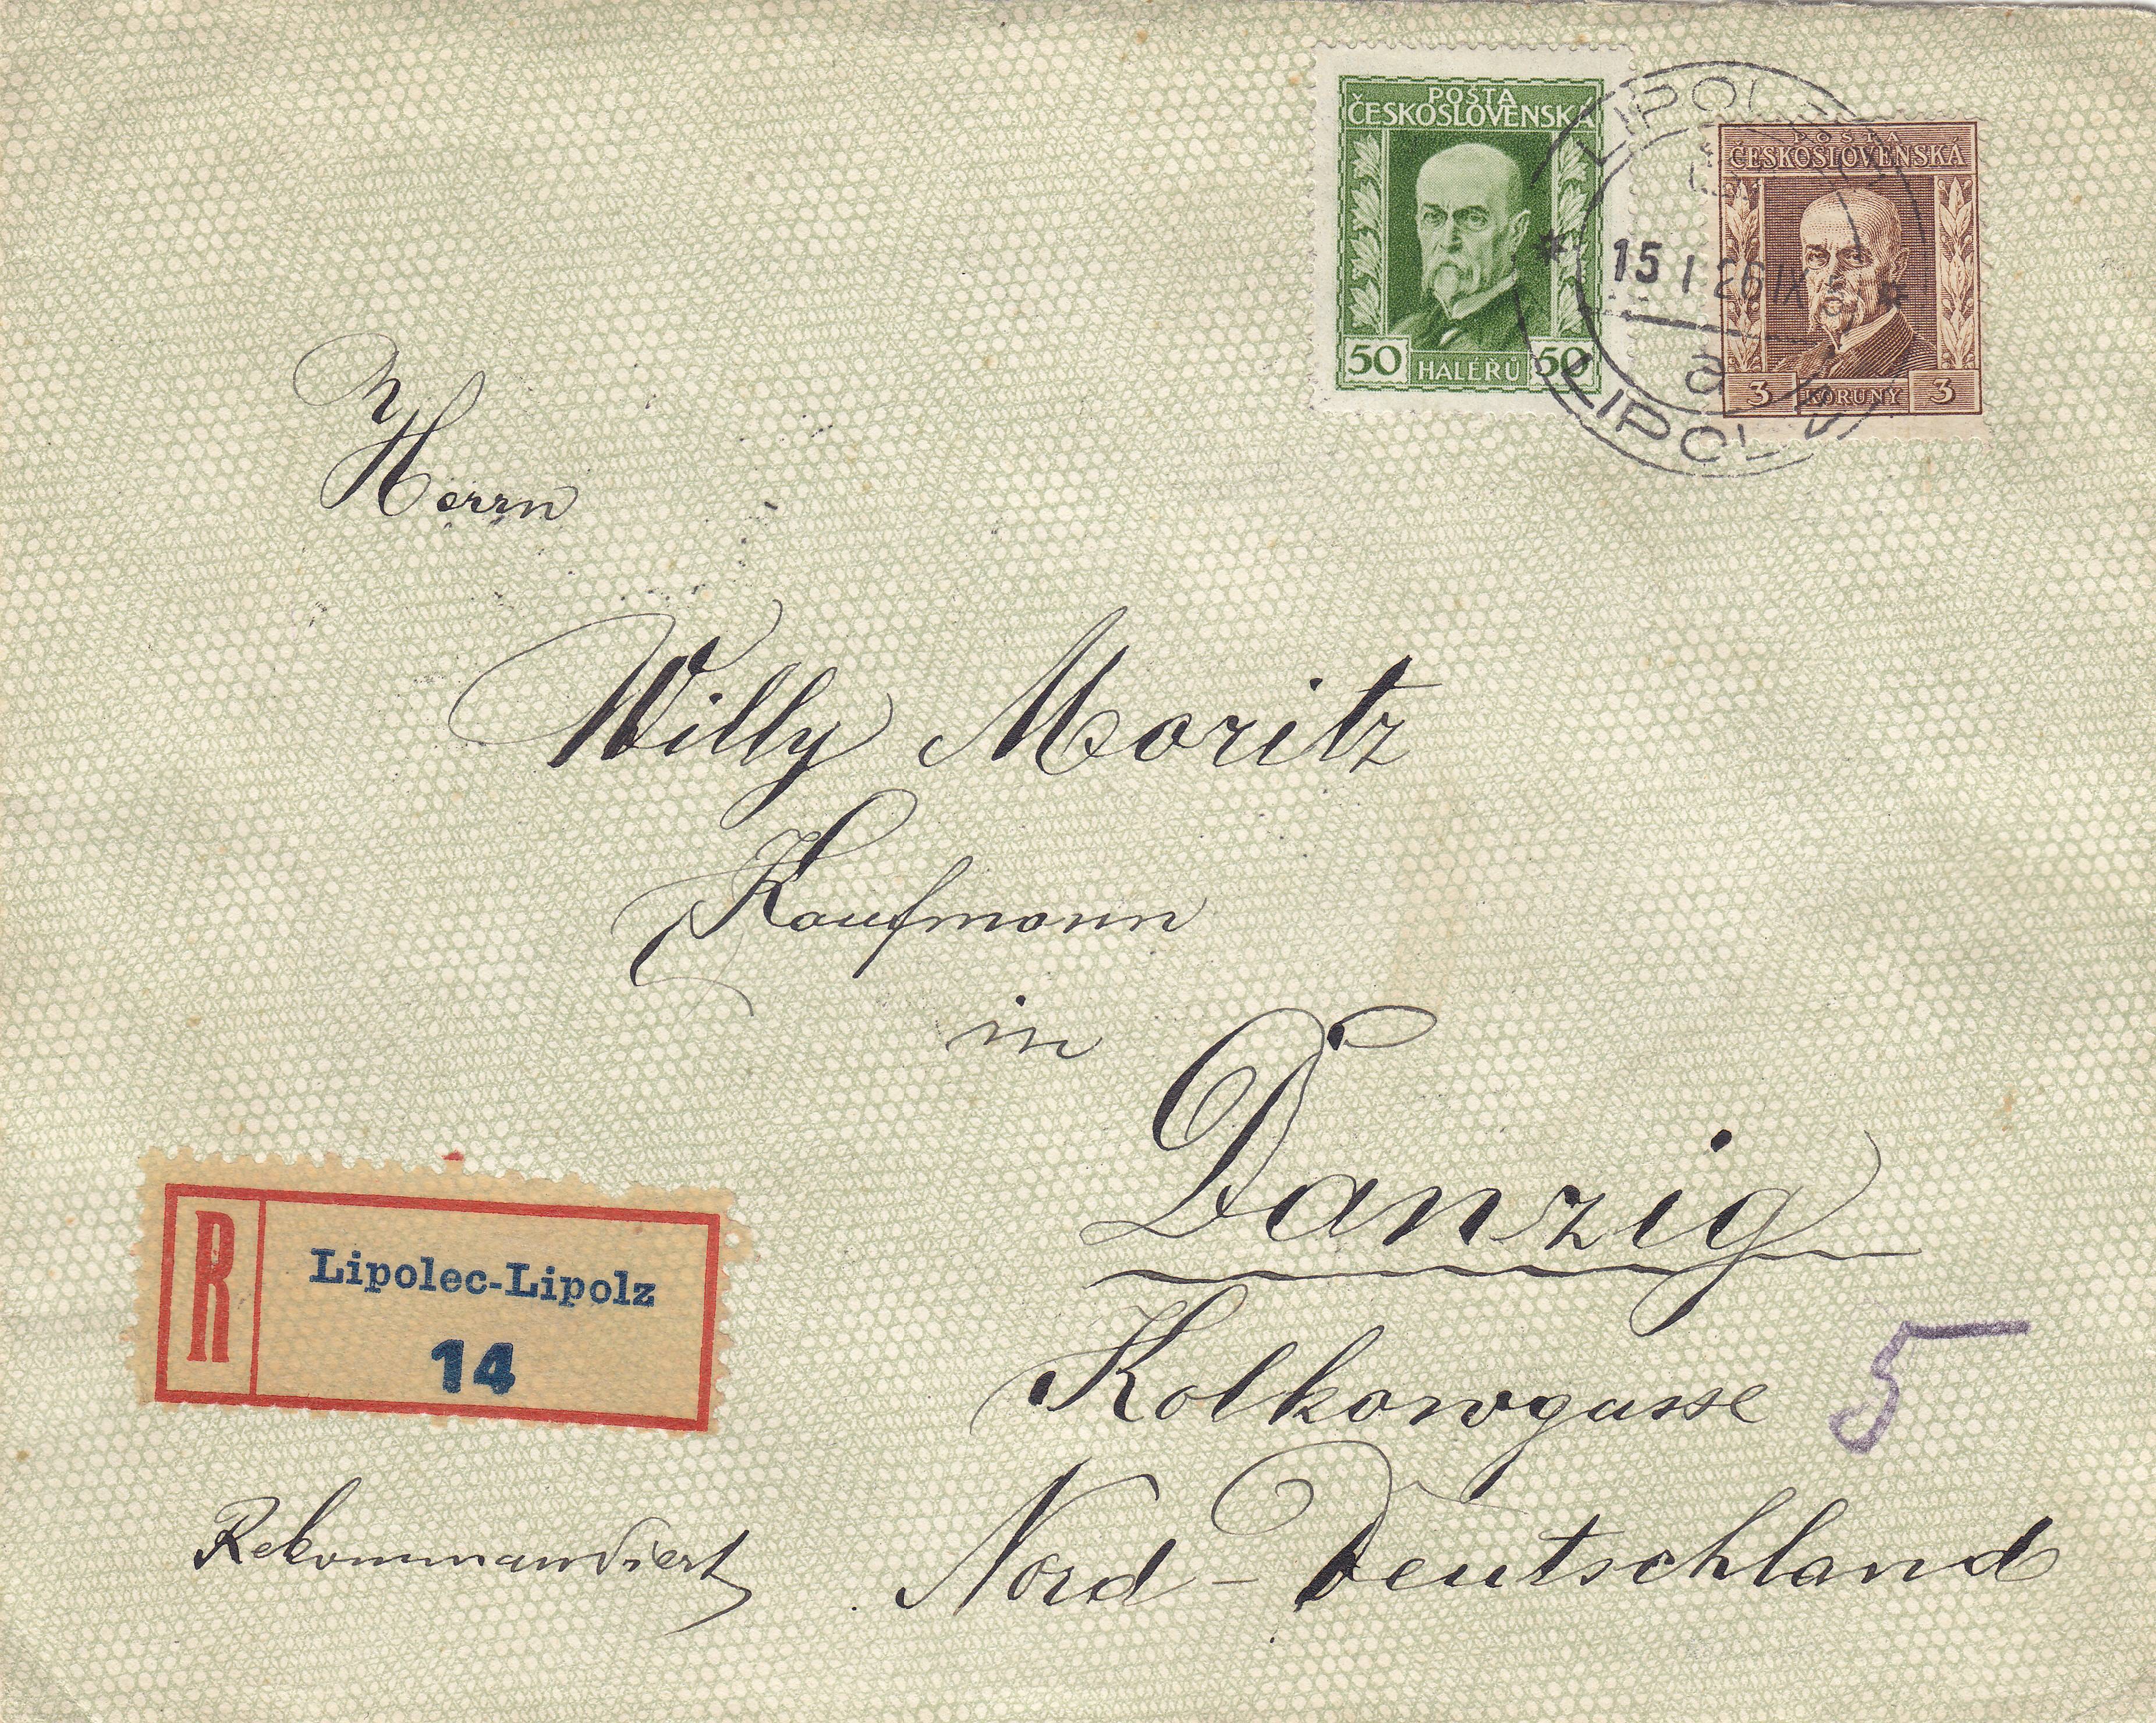 POŠTA
ČESKOSLOVENSKÁ
50 HALÉŘŮ 50
POŠTA
ČESKOSLOVENSKÁ
3 KORUNY 3
LIPOLZ
15 I 26 IX
a
Herrn
Willy Moritz
Kaufmann
in
Danzig
Kolkowgasse 5
Nord-Deutschland
R
Lipolec-Lipolz
14
Rekommandiert